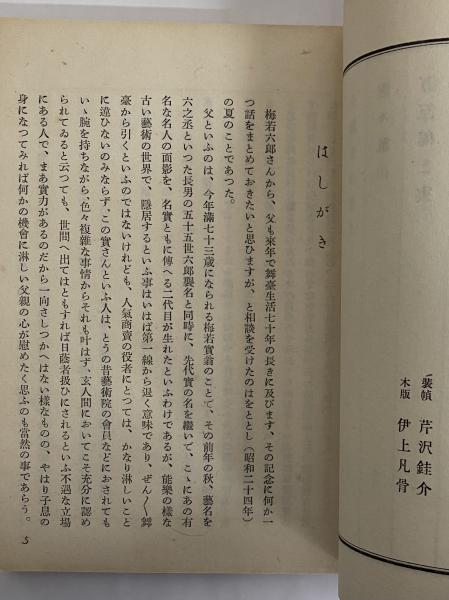 裝幀 芹沢銈介
木版 伊上凡骨
はしがき
梅若六郎さんから、父も來年で舞臺生活七十年の長きに及びます、その記念に何か一
つ話をまとめておきたいと思ひますが、と相談を受けたのはをととし（昭和二十四年）
の夏のことであつた。
父といふのは、今年滿七十三歳になられる梅若實翁のことで、その前年の秋、藝名を
六之丞といつた長男の五十五世六郎襲名と同時に、先代實の名を繼いで、こゝにあの有
名な名人の面影を、名實ともに傳へる二代目が生れたといふわけであるが、能樂の樣な
古い藝術の世界で、隱居するといふ事はいはば第一線から退く意味であり、ぜん／＼舞
臺から引くといふのではないけれども、人氣商賣の役者にとつては、かなり淋しいこと
に違ひないのみならず、この實さんといふ人は、とうの昔藝術院の會員などにおされても
いゝ腕を持ちながら、色々複雜な事情からそれも叶はず、玄人間においてこそ充分に認め
られてゐると云つても、世間へ出てはともすれば日蔭者扱ひにされるといふ不遇な立場
にある人で、まあ實力があるのだから一向さしつかへはない樣なものの、やはり子息の
身になつてみれば何かの機會に淋しい父親の心が慰めたく思ふのも當然の事であらう。
5